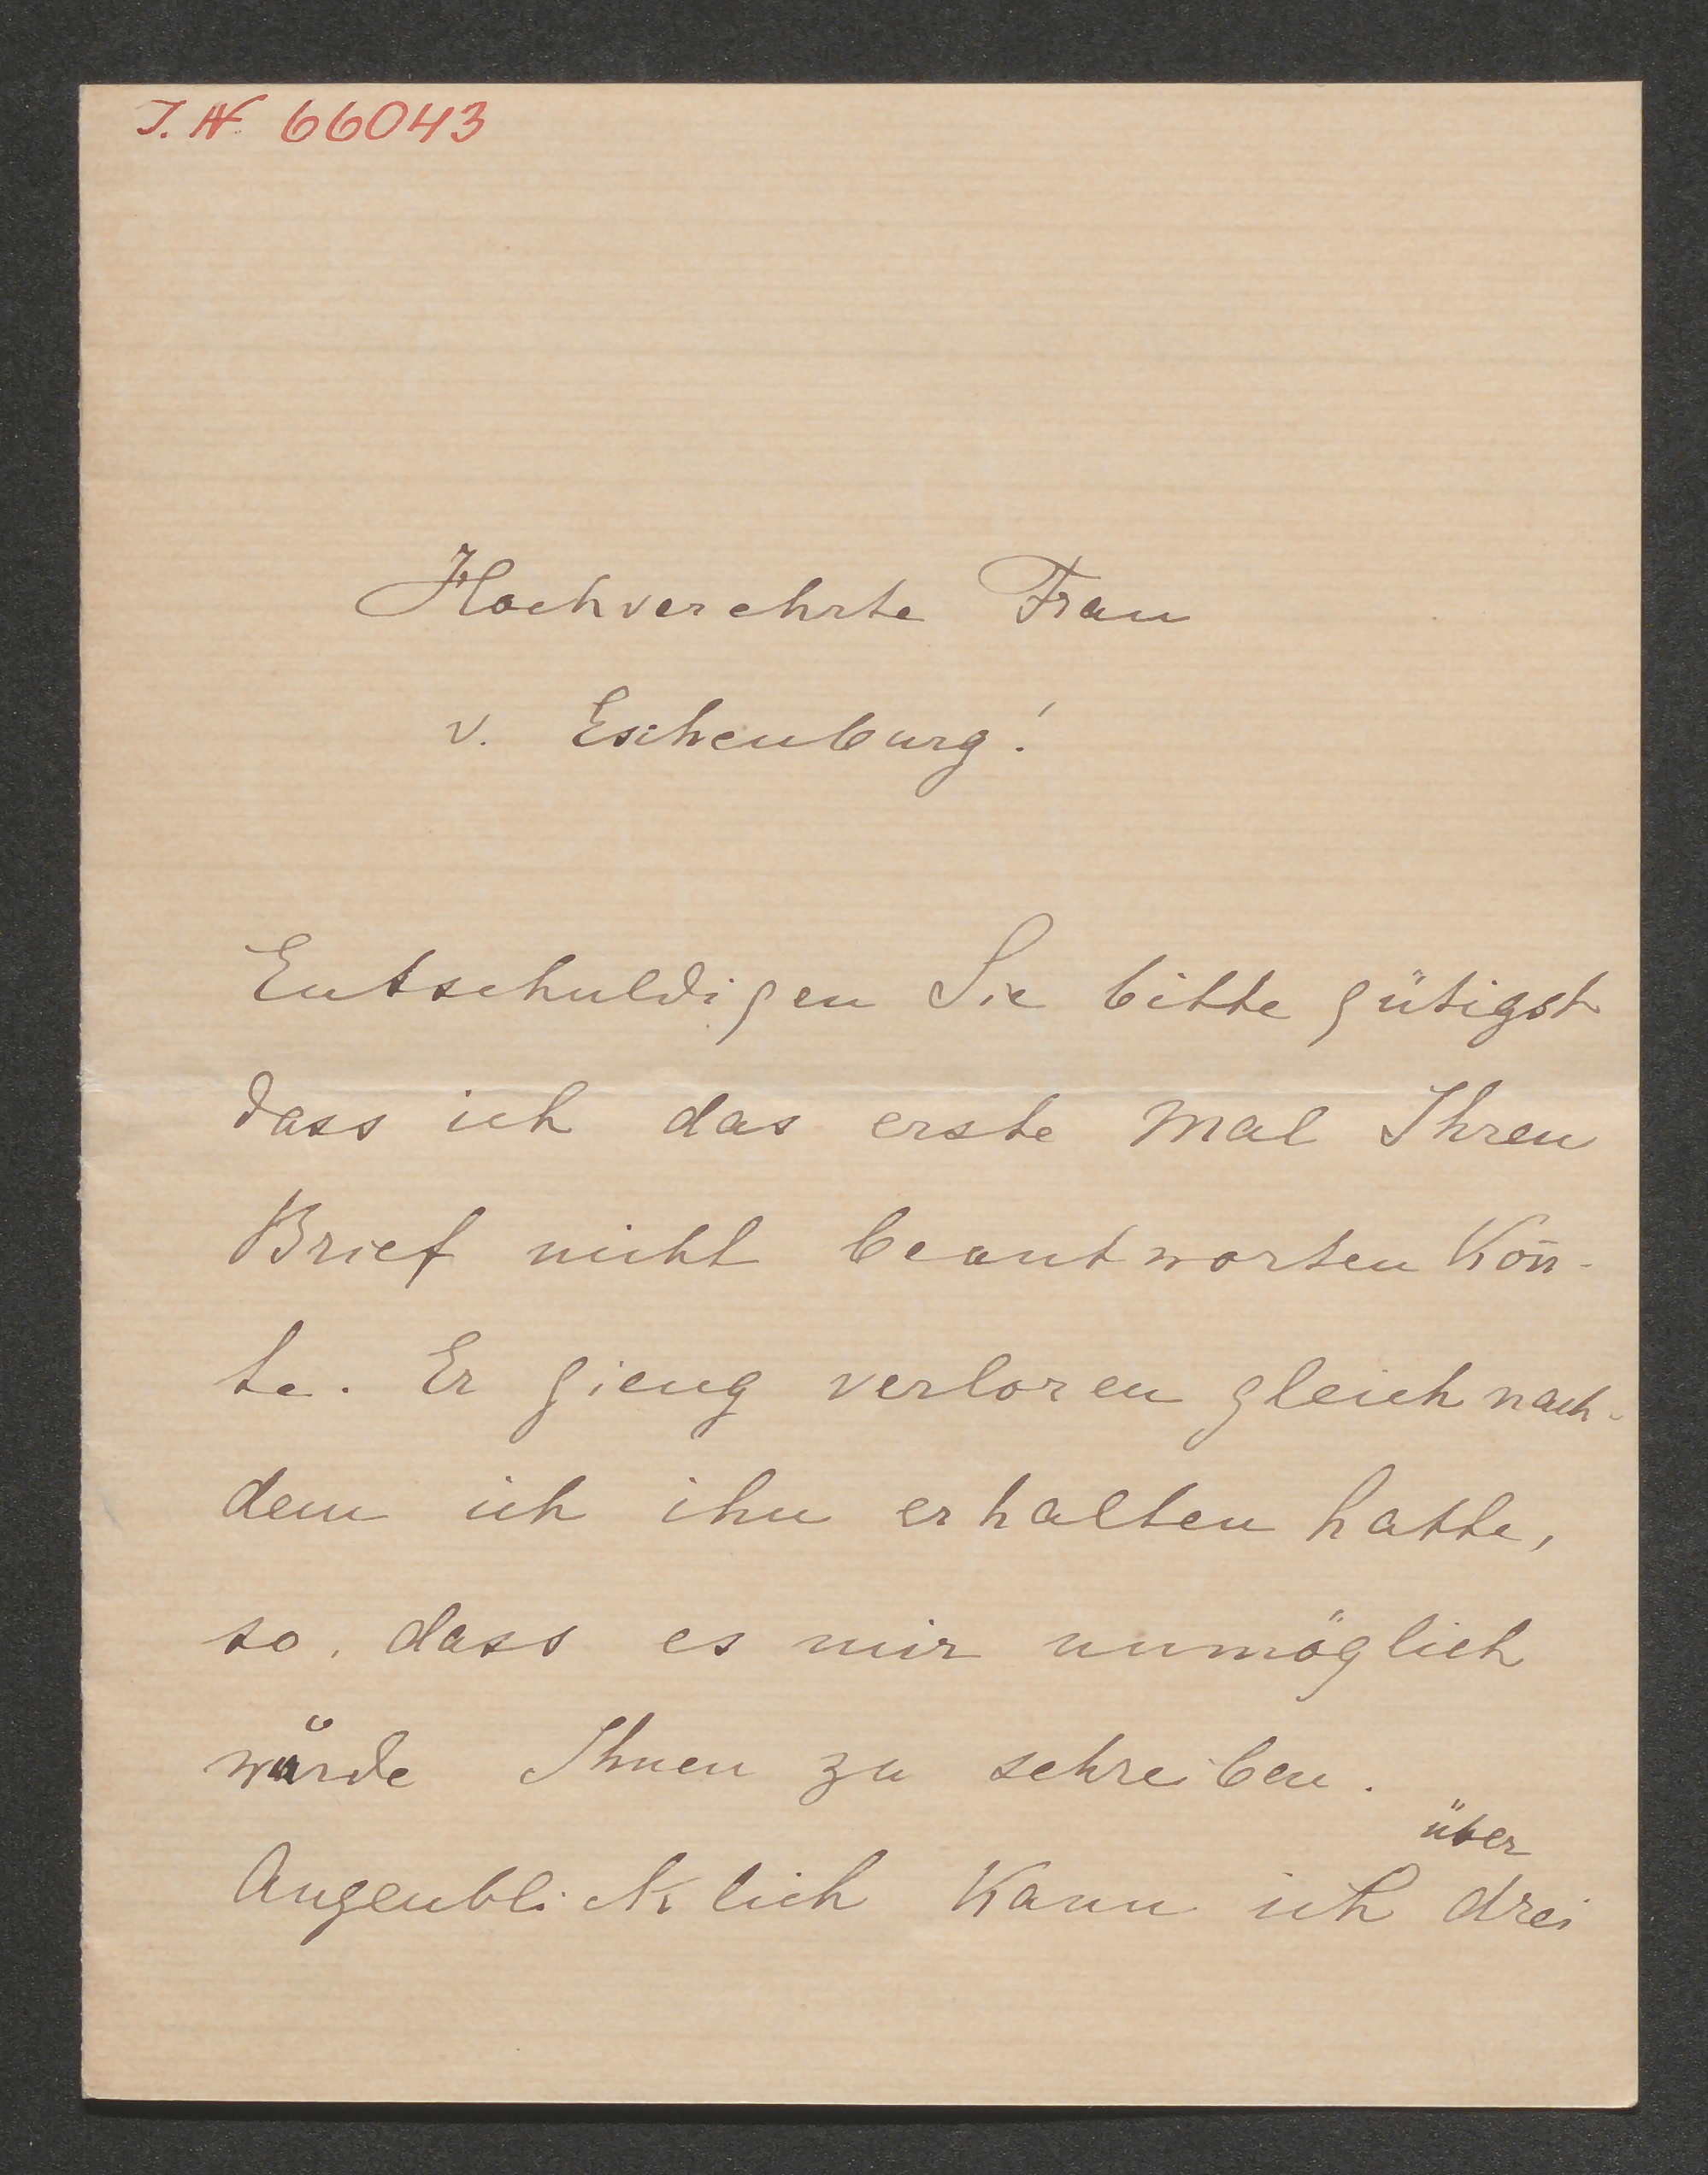 J. N. 66043
Hochverehrte Frau
v. Eschenburg!
Entschuldigen Sie bitte gütigst
dass ich das erste Mal Ihren
Brief nicht beantworten kon̄-
te. Er gieng verloren gleich nach-
dem ich ihn erhalten hatte,
so, dass es mir unmöglich
würde Ihnen zu schreiben.
über
Augenblicklich kann ich drei